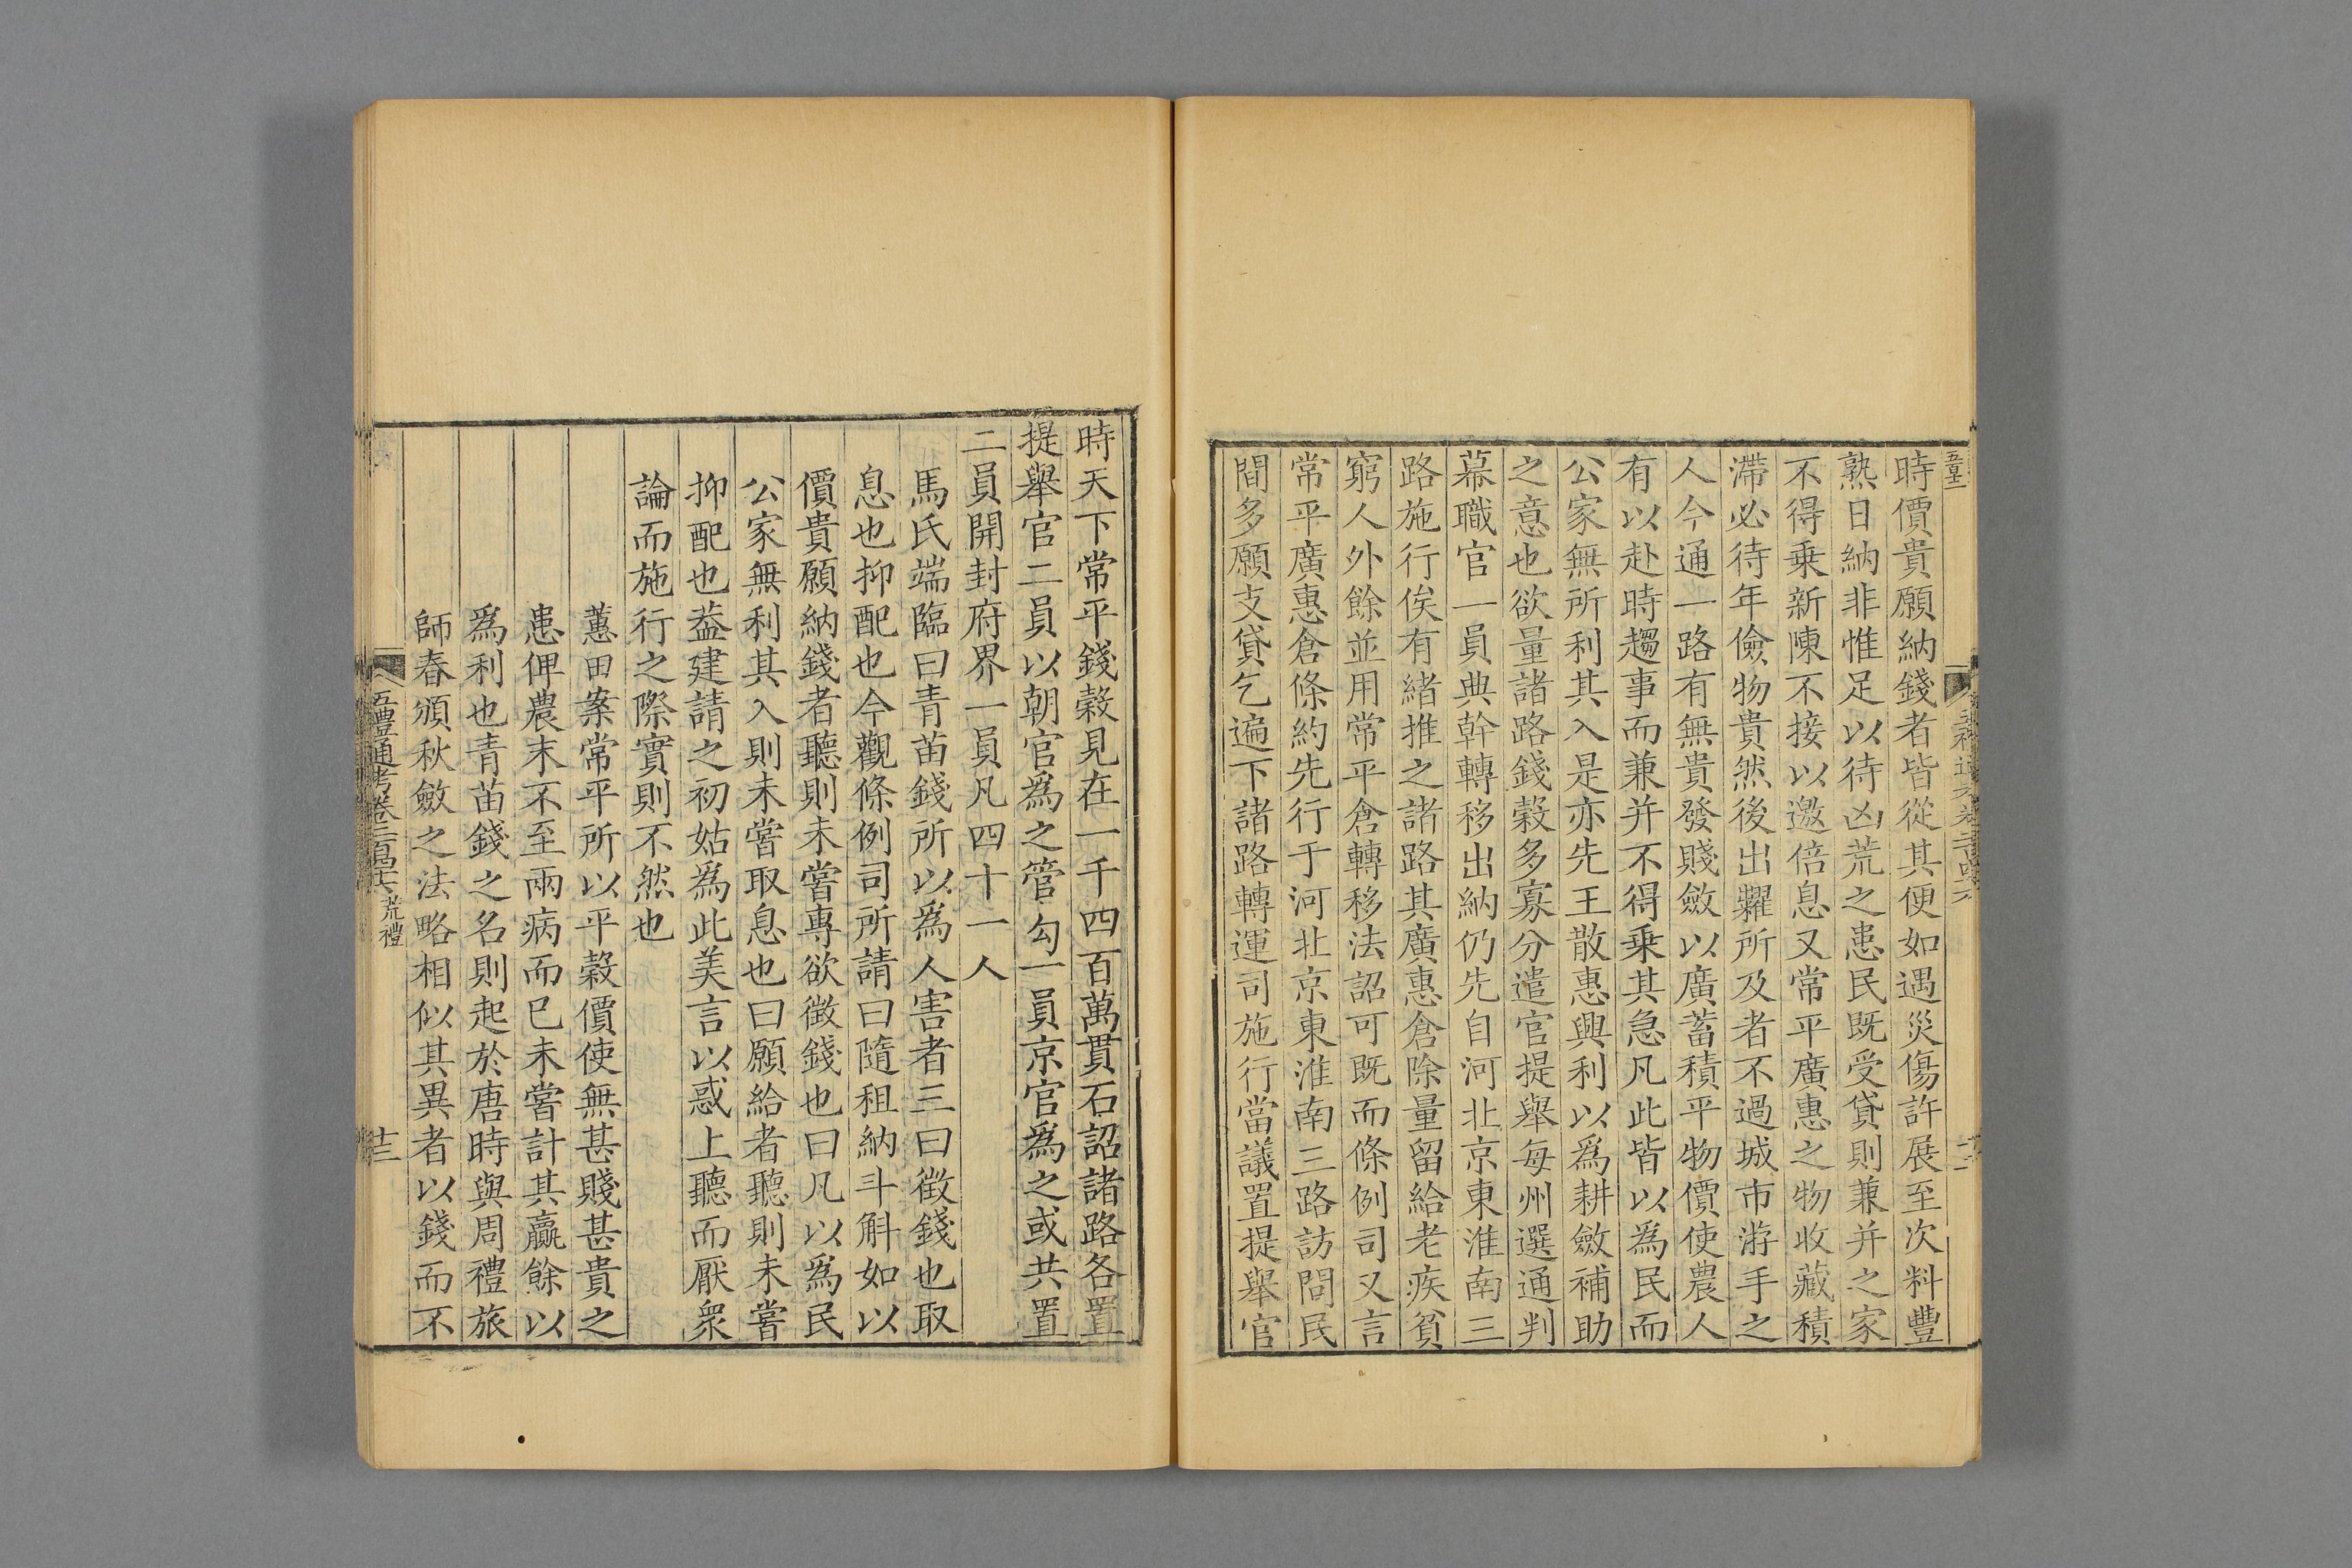 時價貴願納錢者皆從其便如遇災傷許展至次料豐
熟日納非惟足以待凶荒之患民既受貸則兼并之家
不得乗新陳不接以邀倍息又常平廣惠之物收藏積
滯必待年儉物貴然後出糶所及者不過城市游手之
人今通一路有無貴發賤斂以廣蓄積平物價使農人
有以赴時趨事而兼并不得乗其急凡此皆以爲民而
公家無所利其入是亦先王散惠興利以爲耕斂補助
之意也欲量諸路錢穀多寡分遣官提舉每州選通判
幕職官一員典幹轉移出納仍先自河北京東淮南三
路施行俟有緒推之諸路其廣惠倉除量留給老疾貧
窮人外餘並用常平倉轉移法詔可既而條例司又言
常平廣惠倉條約先行于河北京東淮南三路訪問民
間多願支貸乞遍下諸路轉運司施行當議置提舉官
時天下常平錢穀見在一千四百萬貫石詔諸路各置
提舉官二員以朝官爲之管勾一員京官爲之或共置
二員開封府界一員凡四十一人
馬氏端臨曰青苗錢所以爲人害者三曰徵錢也取
息也抑配也今觀條例司所請曰隨租納斗斛如以
價貴願納錢者聽則未嘗專欲徵錢也曰凡以爲民
公家無利其入則未嘗取息也曰願給者聽則未嘗
抑配也葢建請之初姑爲此美言以惑上聽而厭衆
論而施行之際實則不然也
蕙田案常平所以平穀價使無甚賤甚貴之
患俾農末不至兩病而已未嘗計其贏餘以
爲利也青苗錢之名則起於唐時與周禮旅
師春頒秋斂之法略相似其異者以錢而不
五禮通考卷二百四十六 荒禮
十三